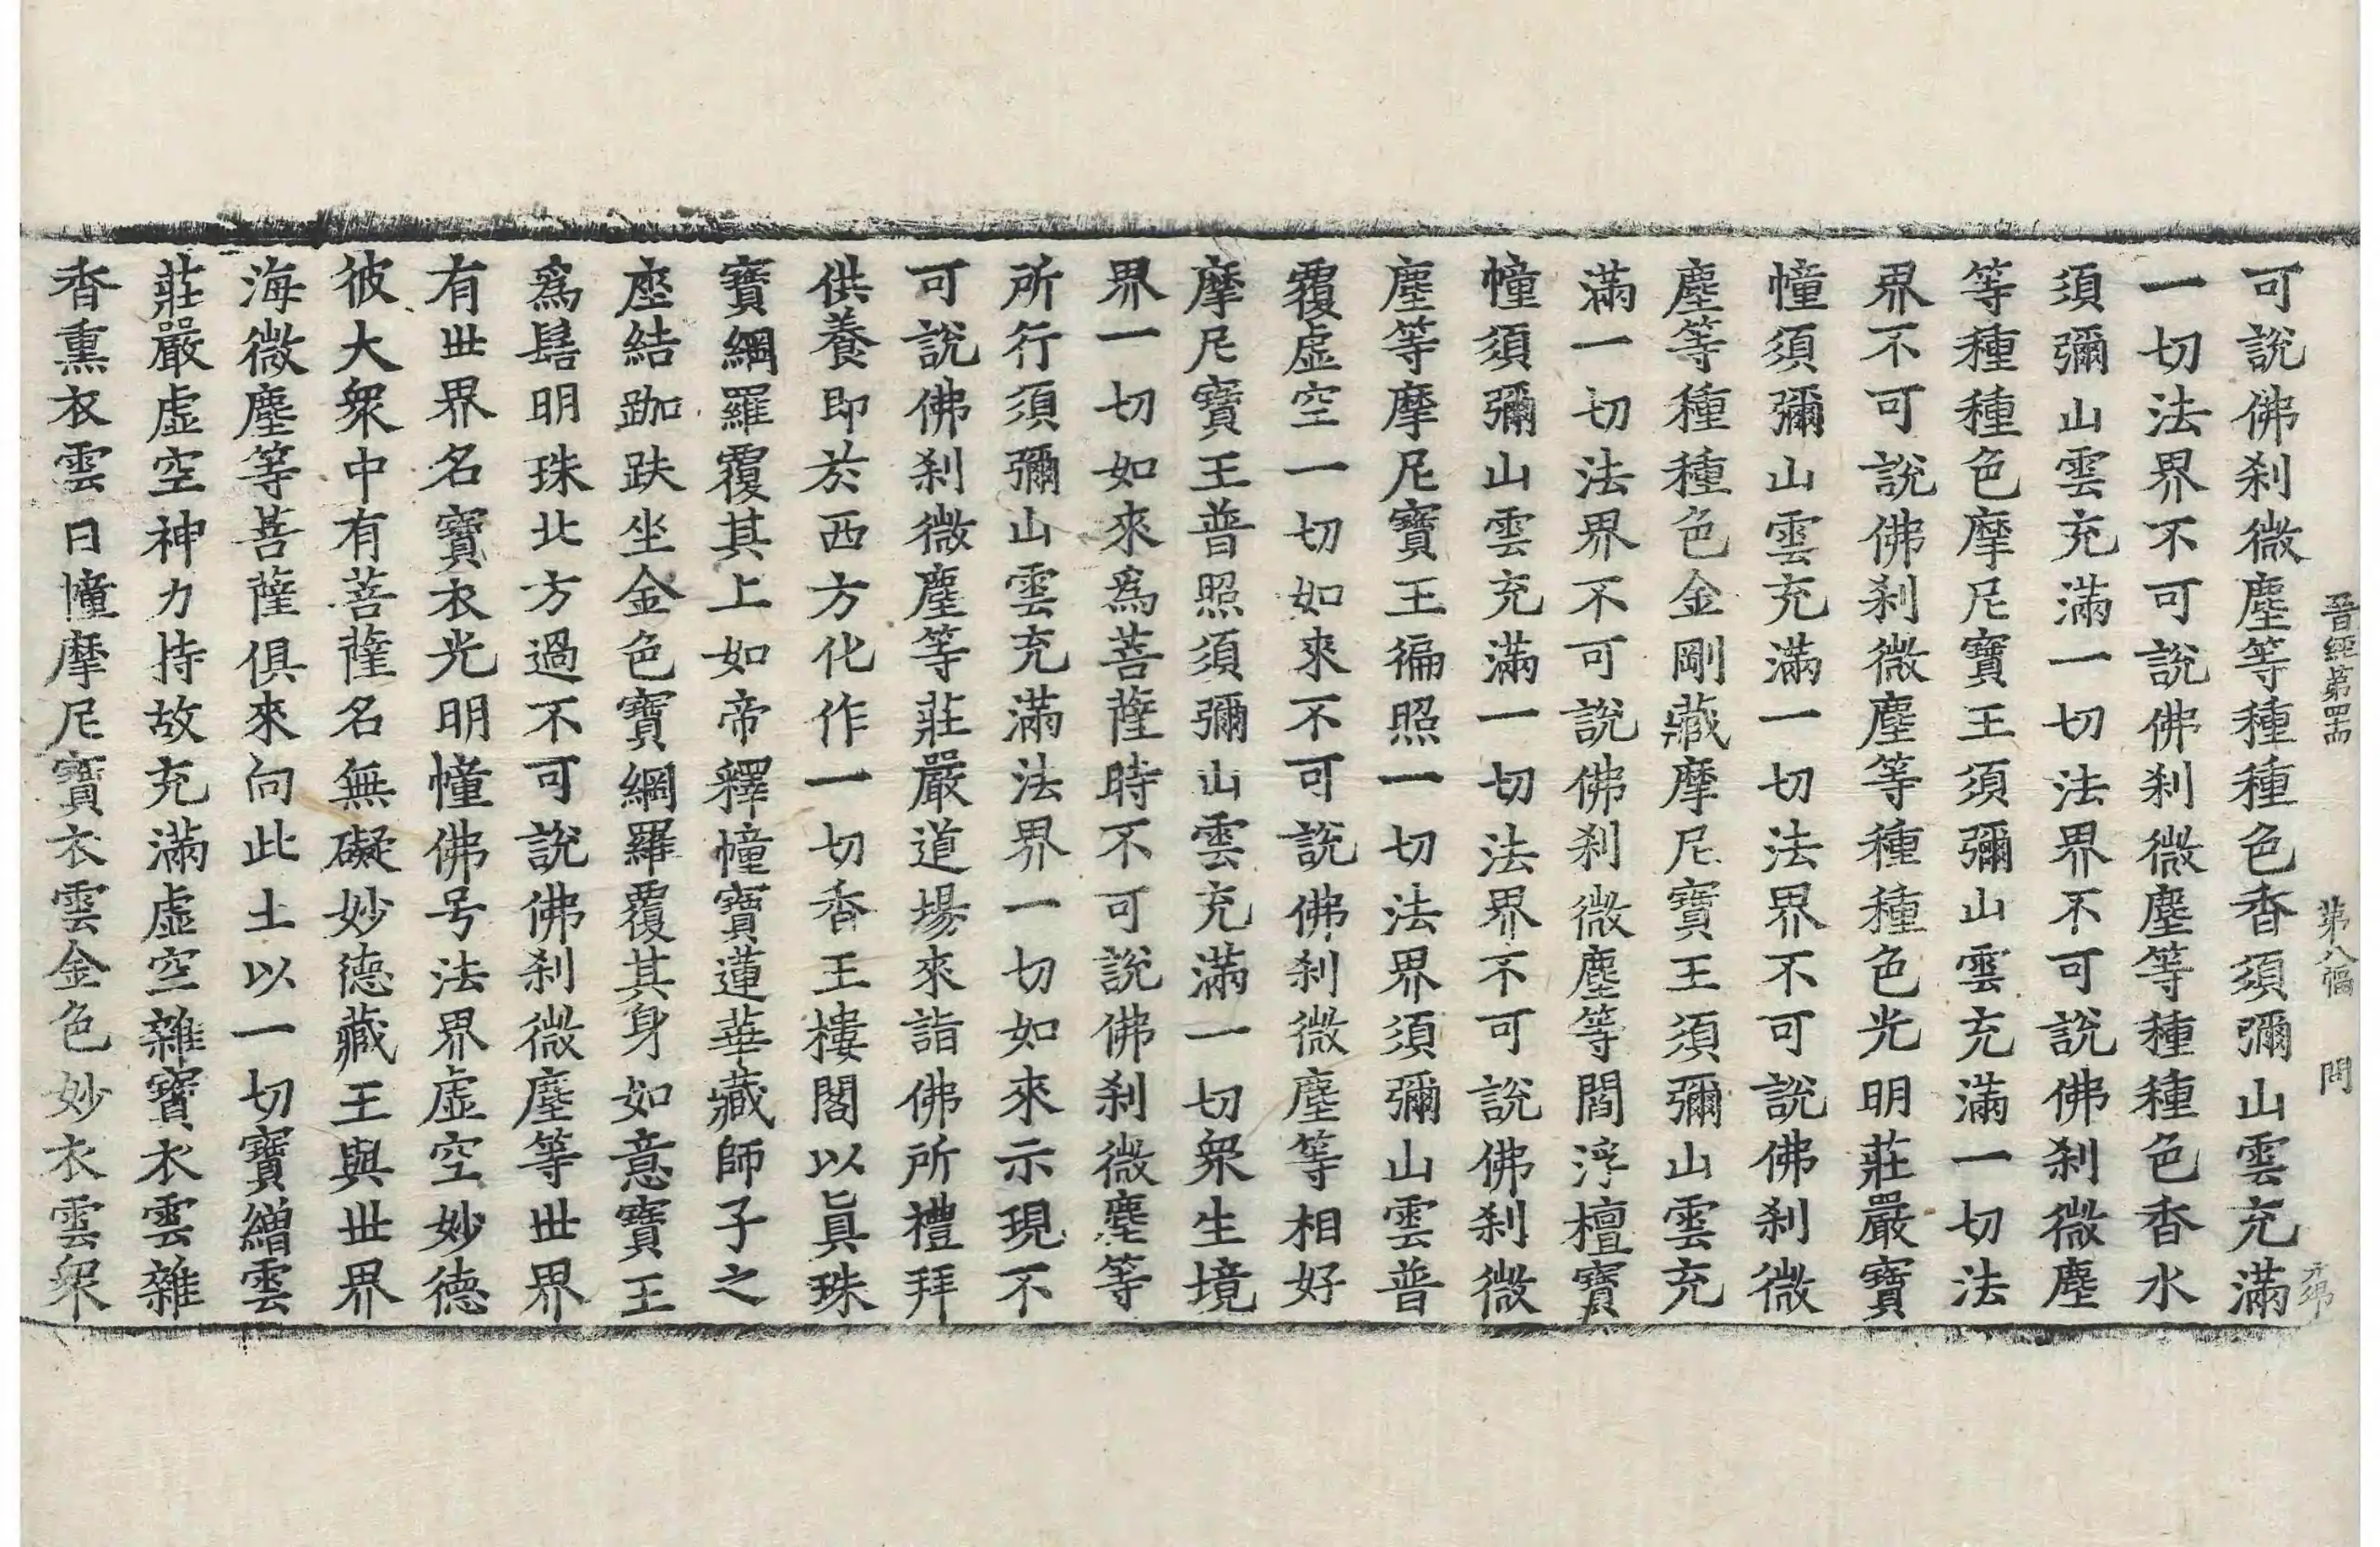 晉經第四十四 第八幅 問
可說佛刹微塵等種種色香須彌山雲充滿
一切法界不可說佛刹微塵等種種色香水
須彌山雲充滿一切法界不可說佛刹微塵
等種種色摩尼寶王須彌山雲充滿一切法
界不可說佛刹微塵等種種色光明莊嚴寶
幢須彌山雲充滿一切法界不可說佛刹微
塵等種種色金剛藏摩尼寶王須彌山雲充
滿一切法界不可說佛刹微塵等閻浮檀寶
幢須彌山雲充滿一切法界不可說佛刹微
塵等摩尼寶王徧照一切法界須彌山雲普
覆虛空一切如來不可說佛刹微塵等相好
摩尼寶王普照須彌山雲充滿一切衆生境
界一切如來爲菩薩時不可說佛刹微塵等
所行須彌山雲充滿法界一切如來示現不
可說佛刹微塵等莊嚴道場來詣佛所禮拜
供養即於西方化作一切香王樓閣以眞珠
寶網羅覆其上如帝釋幢寶蓮華藏師子之
座結跏趺坐金色寶網羅覆其身如意寶王
爲髻明珠北方過不可說佛刹微塵等世界
有世界名寶衣光明幢佛号法界虛空妙德
彼大衆中有菩薩名無礙妙德藏王與世界
海微塵等菩薩俱來向此土以一切寶繒雲
莊嚴虛空神力持故充滿虛空雜寶衣雲雜
香熏衣雲日幢摩尼寶衣雲金色妙衣雲衆